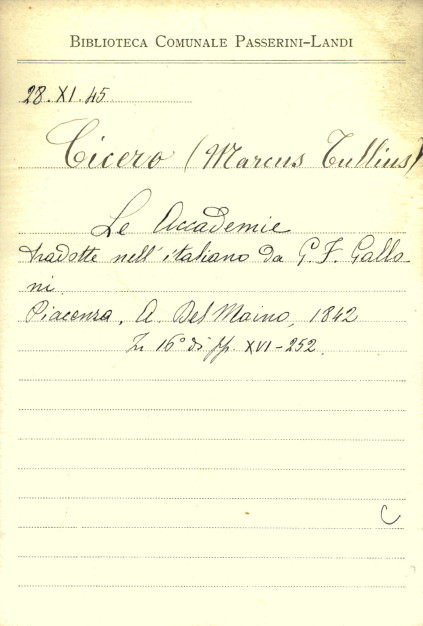 BIBLIOTECA COMUNALE PASSERINI-LANDI
28.XI.45
Cicero (Marcus Tullius)
Le Accademie
tradotte nell'italiano da G. F. Gallo
ni
Piacenza, A. Del Maino, 1842
In 16° di pp. XVI-252.
C